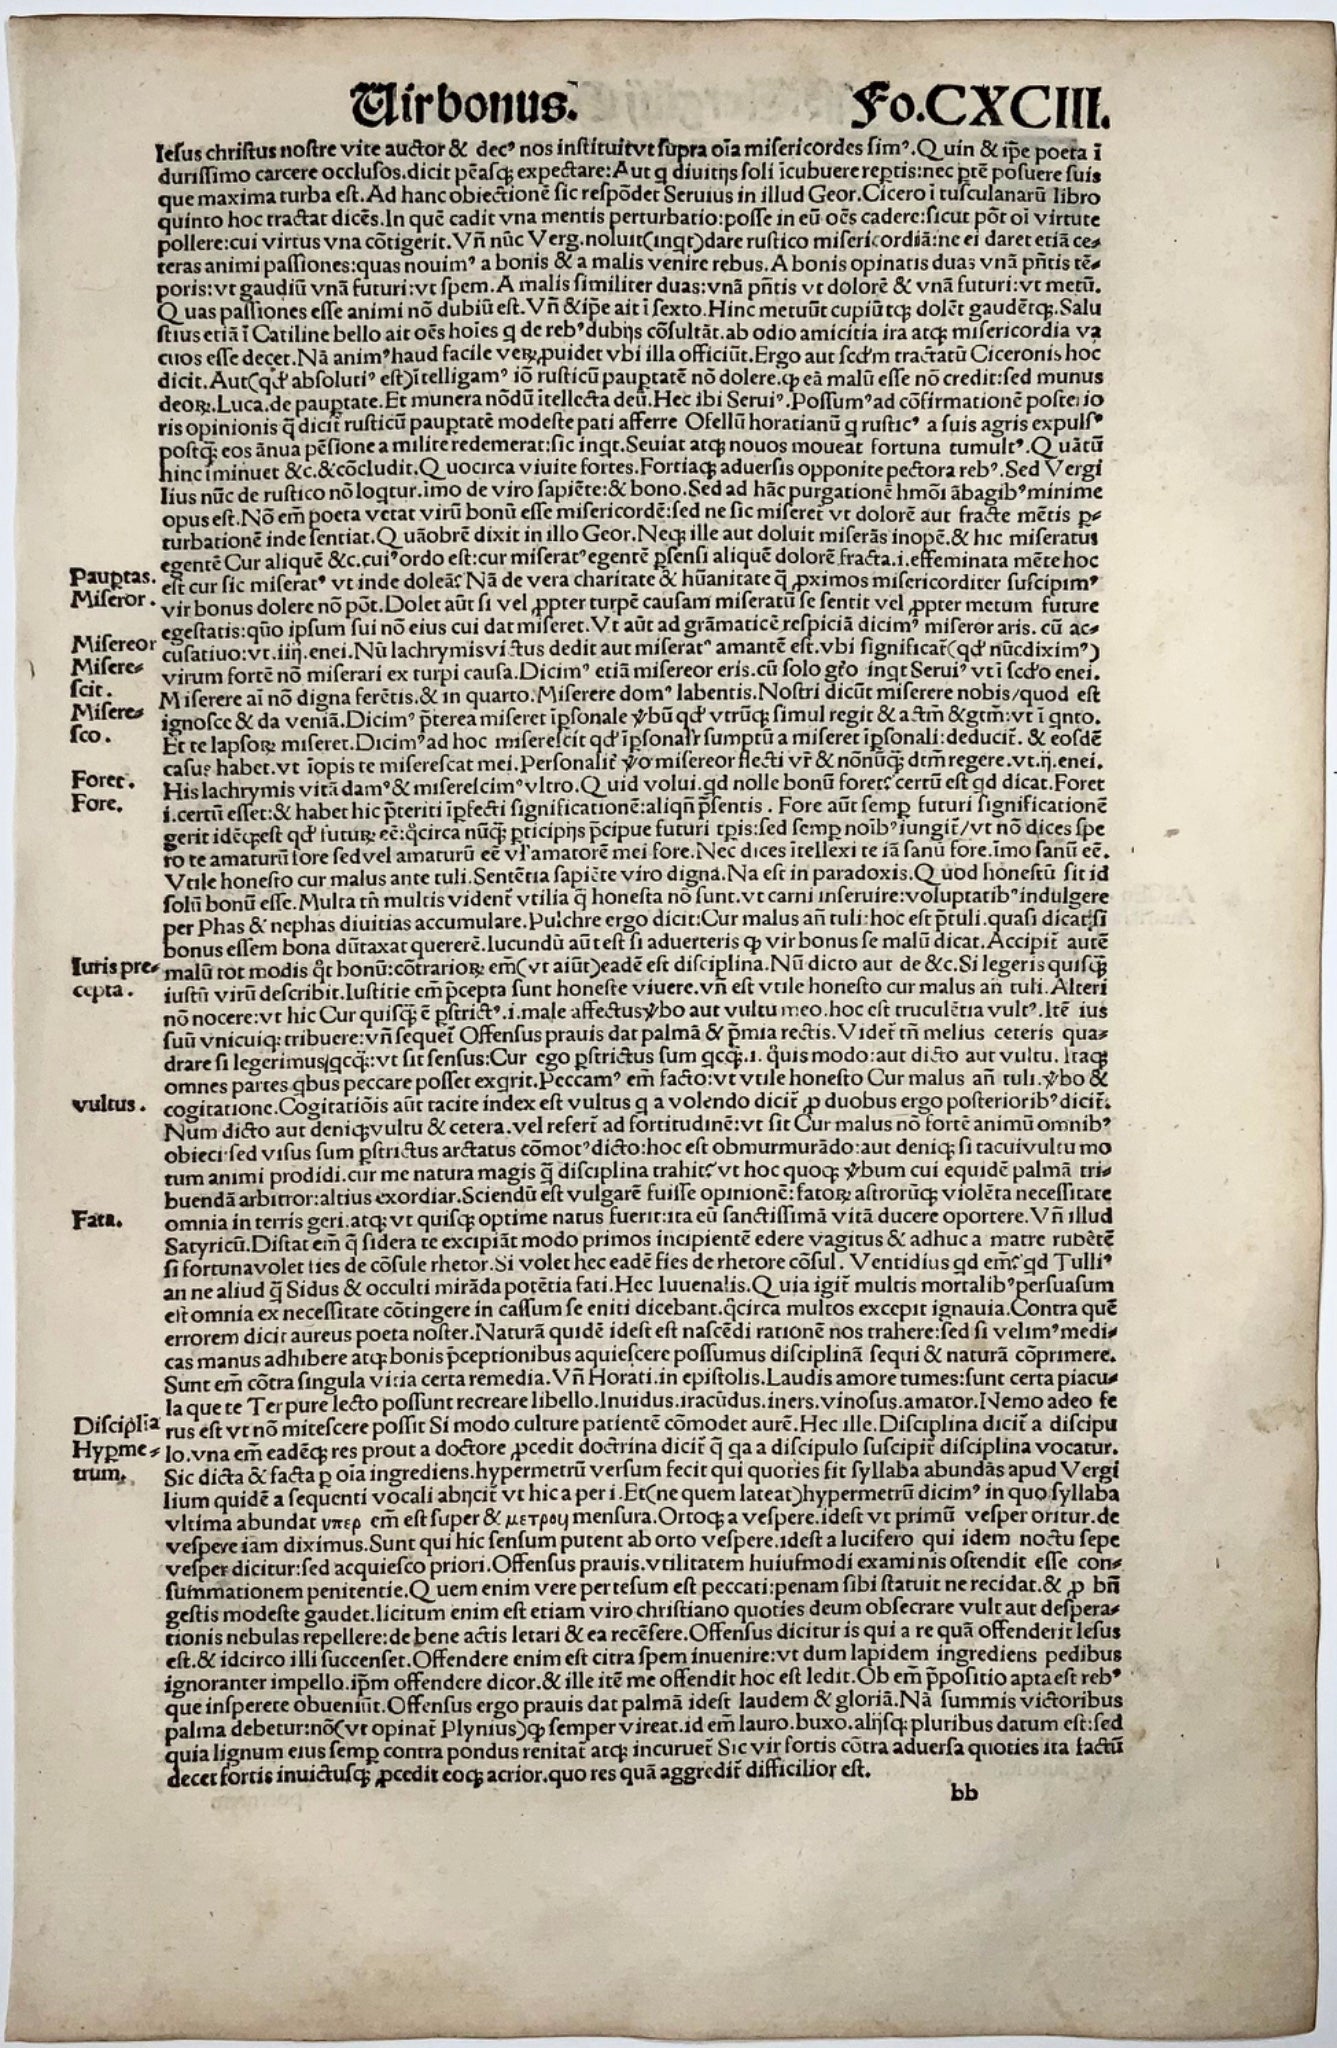 Uirbonus. Fo.CXCIII.
Iesus christus nostre vite auctor & decꝰ nos instituitvt supra oīa misericordes simꝰ.Quin & ip̄e poeta ī
durissimo carcere occlusos.dicit pēasꝗ expectare:Aut q diuitijs soli īcubuere reptis:nec ꝑtē posuere suis
que maxima turba est.Ad hanc obiectionē sic respōdet Seruius in illud Geor.Cicero ī tusculanarū libro
quinto hoc tractat dicēs.In quē cadit vna mentis perturbatio:posse in eū oēs cadere:sicut pōt oī virtute
pollere:cui virtus vna cōtigerit.Vn̄ nūc Verg.noluit(inqt)dare rustico misericordiā:ne ei daret etiā ce-
teras animi passiones:quas nouimꝰ a bonis & a malis venire rebus.A bonis opinatis duas vnā pn̄tis tē-
poris:vt gaudiū vnā futuri:vt spem.A malis similiter duas:vnā pn̄tis vt dolorē & vnā futuri:vt metū.
Quas passiones esse animi nō dubiū est.Vn̄ &ip̄e ait ī sexto.Hinc metuūt cupiūtqꝫ dolēt gaudētqꝫ.Salu
stius etiā ī Catiline bello ait oēs hoīes q de rebꝰ dubijs cōsultāt.ab odio amicitia ira atqꝫ misericordia va
cuos esse decet.Nā animꝰ haud facile veꝝ ꝓuidet vbi illa officiūt.Ergo aut scđm tractatū Ciceronis hoc
dicit.Aut(qđ absolutiꝰ est)ītelligamꝰ iō rusticū pauꝑtatē nō dolere.ꝙ eā malū esse nō credit:sed munus
deoꝝ.Luca.de pauꝑtate.Et munera nōdū ītellecta deū.Hec ibi Seruiꝰ.Possumꝰ ad cōfirmationē posterio
ris opinionis q̄ dicit̄ rusticū pauꝑtatē modeste pati afferre Ofellū horatianū q rusticꝰ a suis agris expulsꝰ
postqꝫ eos ānua pēsione a milite redemerat:sic inqt.Seuiat atqꝫ nouos moueat fortuna tumultꝰ.Quātū
hinc īminuet &c.&cōcludit.Quocirca viuite fortes.Fortiaqꝫ aduersis opponite pectora rebꝰ.Sed Vergi
lius nūc de rustico nō loqtur.imo de viro sapiēte:& bono.Sed ad hāc purgationē hmōi ābagibꝰ minime
opus est.Nō em̄ poeta vetat virū bonū esse misericordē:sed ne sic miseret̄ vt dolorē aut fracte mētis ꝑ-
turbationē inde sentiat.Quāobrē dixit in illo Geor.Neqꝫ ille aut doluit miserās inopē.& hic miseratus
egentē Cur aliquē &c.cuiꝰ ordo est:cur miseratꝰ egentē ꝑsensi aliquē dolorē fracta.i.effeminata mēte hoc
Pauꝑtas. est cur sic miseratꝰ vt inde doleā? Nā de vera charitate & hūanitate q̄ ꝓximos misericorditer suscipimꝰ
Miseror. vir bonus dolere nō pōt.Dolet aūt si vel ꝓpter turpē causam miseratū se sentit vel ꝓpter metum future
egestatis:quō ipsum sui nō eius cui dat miseret.Vt aūt ad grāmaticē respiciā dicimꝰ miseror aris. cū ac-
Misereor cusatiuo:vt.iiij.enei.Nū lachrymis victus dedit aut miseratꝰ amantē est.vbi significat̄(qđ nūcdiximꝰ)
Misere- virum fortē nō miserari ex turpi causa.Dicimꝰ etiā misereor eris.cū solo gtō inqt Seruiꝰ vt ī scđo enei.
scit. Miserere aī nō digna ferētis.& in quarto.Miserere domꝰ labentis.Nostri dicūt miserere nobis/quod est
Misere- ignosce & da veniā.Dicimꝰ p̄terea miseret īꝑsonale v̄bū qđ vtrūqꝫ simul regit & actm̄ &gtm̄:vt ī qnto.
sco. Et te lapsoꝝ miseret.Dicimꝰ ad hoc miserescit qđ īꝑsonalr̄ sumptū a miseret īꝑsonali:deducit̄. & eosdē
casus habet.vt īopis te miserescat mei.Personalit̄ v̄o misereor flecti vr̄ & nōnūqꝫ dtm̄ regere.vt.ij.enei.
Foret. His lachrymis vitā damꝰ & miserescimꝰ vltro.Quid volui.qd nolle bonū foret? certū est qd dicat.Foret
Fore. i.certū esset:& habet hic p̄teriti īꝑfecti significationē:aliqn̄ p̄sentis. Fore aūt semꝑ futuri significationē
gerit idēqꝫest qđ futuꝝ eē:q̄circa nūqꝫ ꝑticipijs p̄cipue futuri tꝑis:sed semꝑ noībꝰ iungit̄/vt nō dices spe
ro te amaturū fore sed vel amaturū eē vl̓ amatorē mei fore.Nec dices ītellexi te iā sanū fore.īmo sanū eē.
Vtile honesto cur malus ante tuli.Sentētia sapiēte viro digna.Na est in paradoxis.Quod honestū sit id
solū bonū esse.Multa tn̄ multis vident̄ vtilia q̄ honesta nō sunt.vt carni inseruire:voluptatibꝰ indulgere
per Phas & nephas diuitias accumulare.Pulchre ergo dicit:Cur malus an̄ tuli:hoc est p̄tuli.quasi dicat:si
bonus essem bona dūtaxat quererē.Iucundū aūt est si aduerteris ꝙ vir bonus se malū dicat.Accipit̄ autē
Iuris pre- malū tot modis q̄t bonū:cōtrarioꝝ em̄(vt aiūt)eadē est disciplina.Nū dicto aut de &c.Si legeris quisqꝫ
cepta. iustū virū describit.Iustitie em̄ p̄cepta sunt honeste viuere.vn̄ est vtile honesto cur malus an̄ tuli.Alteri
nō nocere:vt hic Cur quisqꝫ ē ꝑstrictꝰ.i.male affectus v̄bo aut vultu meo.hoc est truculētia vultꝰ.Itē ius
suū vnicuiqꝫ tribuere:vn̄ sequet̄ Offensus prauis dat palmā & p̄mia rectis.Videt̄ tn̄ melius ceteris qua-
drare si legerimus/qcqꝫ:vt sit sensus:Cur ego ꝑstrictus sum qcqꝫ.i. q̄uis modo:aut dicto aut vultu. Itaqꝫ
omnes partes qbus peccare posset exqrit.Peccamꝰ em̄ facto:vt vtile honesto Cur malus an̄ tuli.v̄bo &
vultus. cogitatione.Cogitatiōis aūt tacite index est vultus q a volendo dicit̄ ꝓ duobus ergo posterioribꝰ dicit̄.
Num dicto aut deniqꝫvultu & cetera.vel refert̄ ad fortitudinē:vt sit Cur malus nō fortē animū omnibꝰ
obieci:sed visus sum ꝑstrictus arctatus cōmotꝰ dicto:hoc est obmurmurādo:aut deniqꝫ si tacui vultu mo
tum animi prodidi.cur me natura magis q̄ disciplina trahit? vt hoc quoqꝫ v̄bum cui equidē palmā tri-
buendā arbitror:altius exordiar.Sciendū est vulgarē fuisse opinionē:fatoꝝ astrorūqꝫ violēta necessitate
Fata. omnia in terris geri.atqꝫ vt quisqꝫ optime natus fuerit:ita eū sanctissimā vitā ducere oportere.Vn̄ illud
Satyricū.Distat em̄ q̄ sidera te excipiāt modo primos incipientē edere vagitus & adhuc a matre rubētē
si fortunavolet fies de cōsule rhetor.Si volet hec eadē fies de rhetore cōsul. Ventidius qd em̄? qd Tulliꝰ
an ne aliud q̄ Sidus & occulti mirāda potētia fati.Hec Iuuenalis.Quia igit̄ multis mortalibꝰ persuasum
est omnia ex necessitate cōtingere in cassum se eniti dicebant.q̄circa multos excepit ignauia.Contra quē
errorem dicit aureus poeta noster.Naturā quidē idest est nascēdi rationē nos trahere:sed si velimꝰ medi-
cas manus adhibere atqꝫ bonis p̄ceptionibus aquiescere possumus disciplinā sequi & naturā cōprimere.
Sunt em̄ cōtra singula vitia certa remedia.Vn̄ Horati.in epistolis.Laudis amore tumes:sunt certa piacu-
la que te Ter pure lecto possunt recreare libello.Inuidus.iracūdus.iners.vinosus.amator.Nemo adeo fe
Disciplīa rus est vt nō mitescere possit Si modo culture patientē cōmodet aurē.Hec ille.Disciplina dicit̄ a discipu
Hyꝑme- lo.vna em̄ eadēqꝫ res prout a doctore ꝓcedit doctrina dicit̄ q̄ qa a discipulo suscipit̄ disciplina vocatur.
trum. Sic dicta & facta ꝑ oīa ingrediens.hypermetrū versum fecit qui quoties fit syllaba abundās apud Vergi
lium quidē a sequenti vocali abijcit̄ vt hic a per i.Et(ne quem lateat)hypermetrū dicimꝰ in quo syllaba
vltima abundat υπερ em̄ est super & μετρου mensura.Ortoqꝫ a vespere.idest vt primū vesper oritur.de
vespere iam diximus.Sunt qui hic sensum putent ab orto vespere.idest a lucifero qui idem noctu sepe
vesper dicitur:sed acquiesco priori.Offensus prauis.vtilitatem huiusmodi examinis ostendit esse con-
summationem penitentie.Quem enim vere pertesum est peccati:penam sibi statuit ne recidat.& ꝓ bn̄
gestis modeste gaudet.licitum enim est etiam viro christiano quoties deum obsecrare vult aut despera-
tionis nebulas repellere:de bene actis letari & ea recēsere.Offensus dicitur is qui a re quā offenderit lesus
est.& idcirco illi succenset.Offendere enim est citra spem inuenire:vt dum lapidem ingrediens pedibus
ignoranter impello.ip̄m offendere dicor.& ille itē me offendit hoc est ledit.Ob em̄ p̄positio apta est rebꝰ
que insperete obueniūt.Offensus ergo prauis dat palmā idest laudem & gloriā.Nā summis victoribus
palma debetur:nō(vt opinat̄ Plynius)ꝙ semper vireat.id em̄ lauro.buxo.alijsqꝫ pluribus datum est:sed
quia lignum eius semꝑ contra pondus renitat̄ atqꝫ incuruet̄ Sic vir fortis cōtra aduersa quoties ita factū
decet fortis inuictusqꝫ ꝓcedit eoqꝫ acrior.quo res quā aggredit̄ difficilior est.
bb